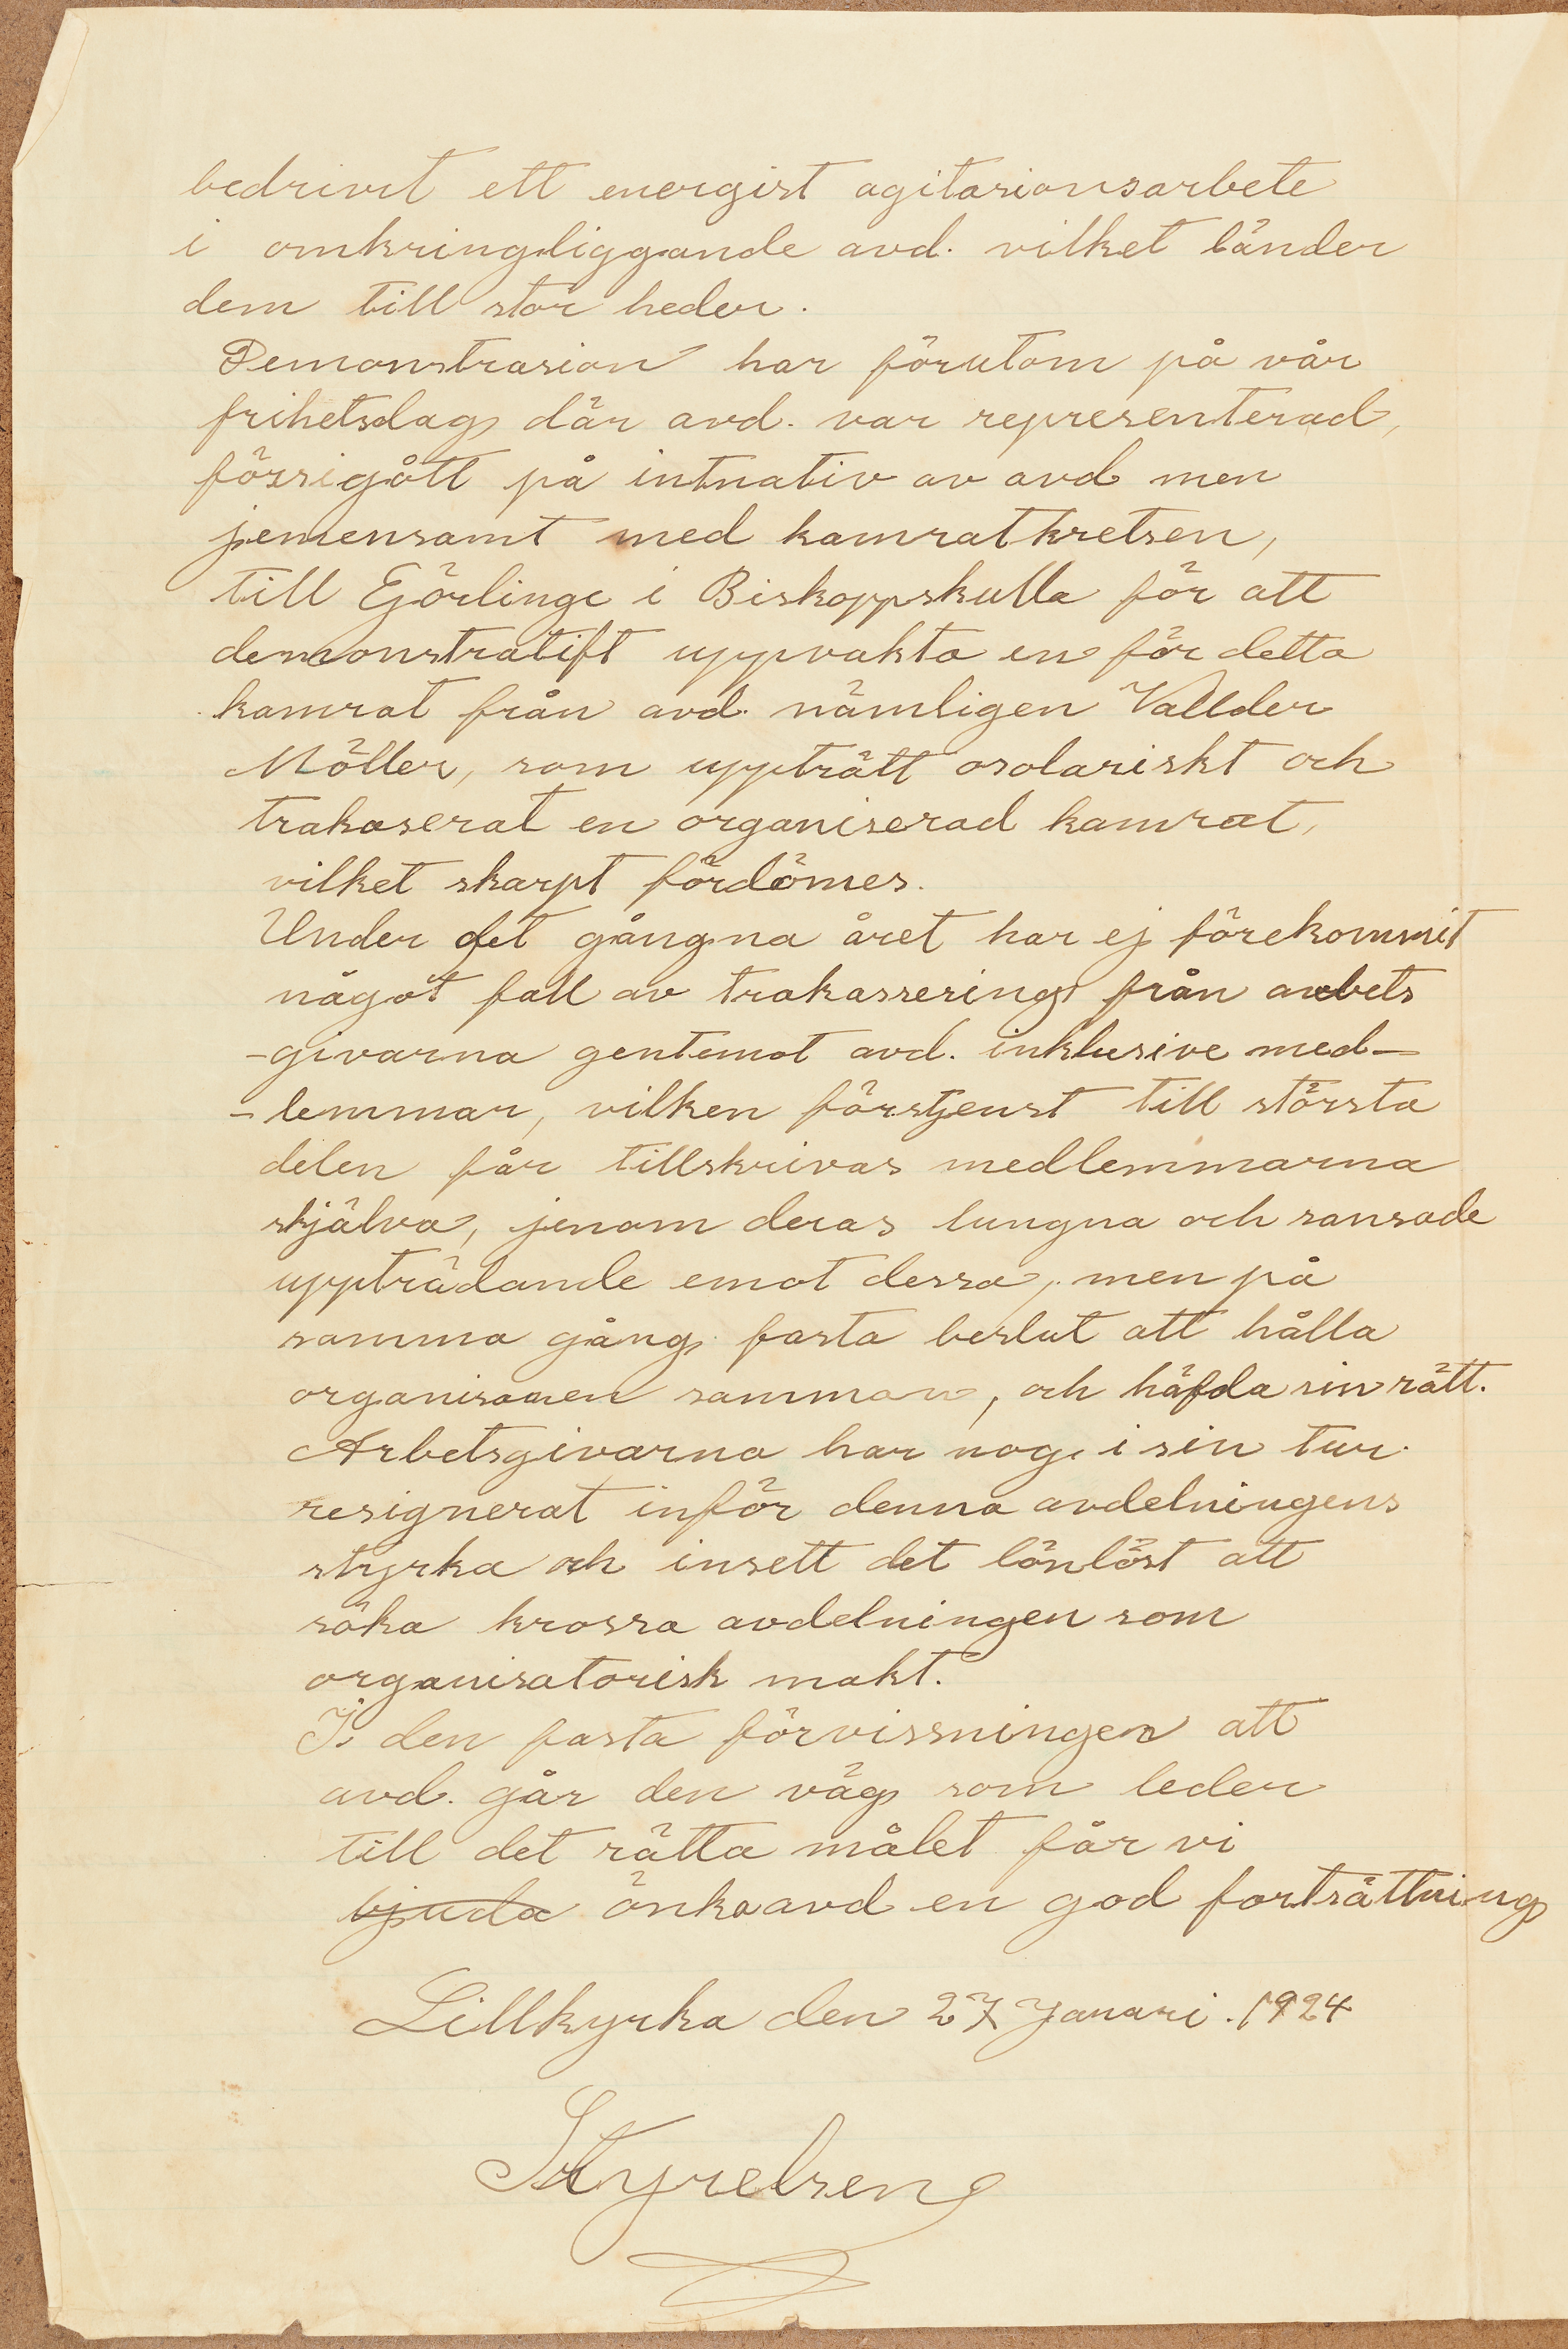 bedrivit ett energist agitasionsarbete
i omkringliggande avd. vilket länder
dem till stor heder.
Demonstrasion har förutom på vår
frihetsdag där avd. var representerad,
försigått på intnativ av avd men
jemensamt med kamratkretsen,
till Ejörlinge i Biskoppskulla för att
demonstratift uppvakta en för detta
kamrat från avd. nämligen Vallder
Möller, som uppträtt osolariskt och
trakaserat en organiserad kamrat,
vilket skarpt fördömes.
Under det gångna året har ej förekommit
något fall av trakassering från arbets
-givarna gentemot avd. inklusive med-
-lemmar, vilken förstjenst till största
delen får tillskrivas medlemmarna
skjälva, jenom deras lungna och sansade
uppträdande emot dessa, men på
samma gång fasta beslut att hålla
organisomen samman, och häfda sin rätt.
Arbetsgivarna har nog i sin tur
resignerat inför denna avdelningens
styrka och insett det lönlöst att
söka krossa avdelningen som
organisatorisk makt.
I den fasta förvissningen att
avd. går den väg som leder
till det rätta målet får vi
bjuda önska avd en god fortsättning
Lillkyrka den 27 Januari. 1924
Styrelsen